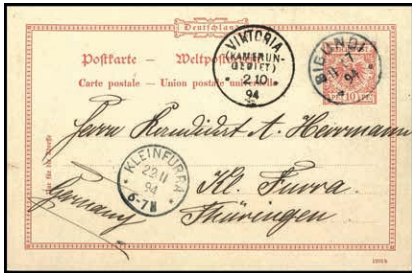 Deutschland
Postkarte — Weltpostverein
Carte postale — Union postale universelle
VIKTORIA
(KAMERUN-
GEBIET)
* 2 10 *
94
BIBUNDI
94
10
Herrn Kandidat A. Herrmann
Kl. Furra
Thüringen
Germany
KLEINFURRA
22.11
94
6-7N